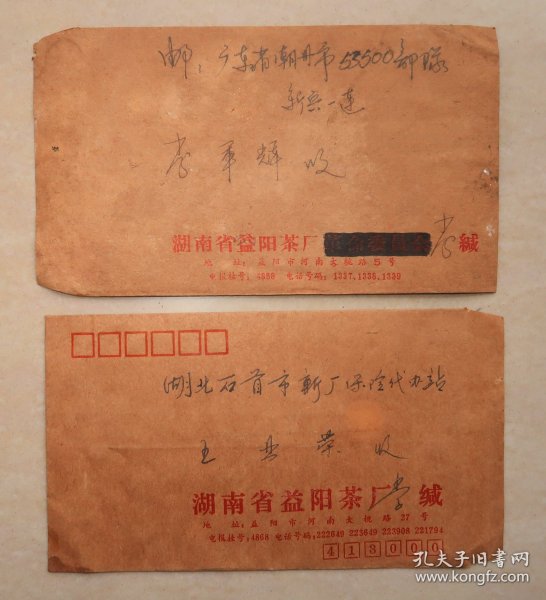 邮：广东省潮州市53500部队
新兵一连
军辉 收
湖南省益阳茶厂 缄
地 址：益阳市河南大桃路5号
电报挂号：4868 电话号码：1337、1338、1339
湖北石首市新厂保险代办站
王 芸荣 收
湖南省益阳茶厂 李 缄
地 址：益阳市河南大桃路27号
电报挂号：4868 电话号码：222649 223649 223908 221794
413000
孔夫子旧书网
www.kongfz.com